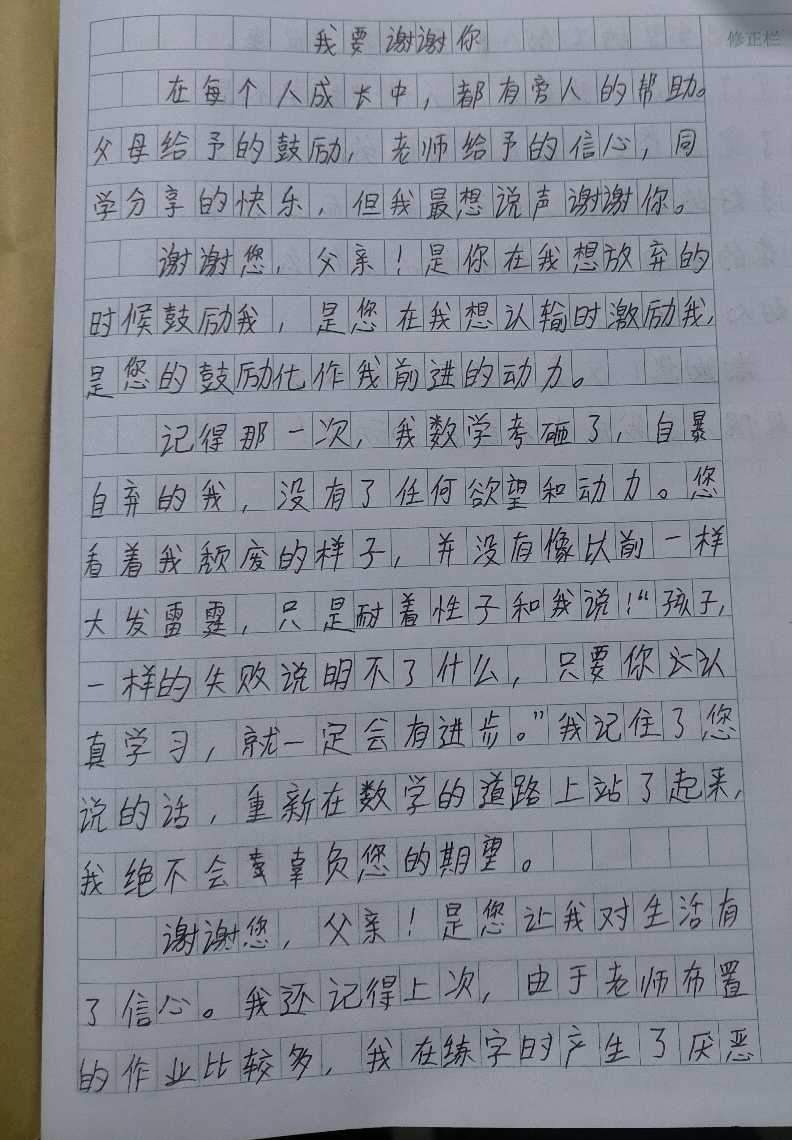 修正栏
我要谢谢你
在每个人成长中，都有旁人的帮助。
父母给予的鼓励，老师给予的信心，同
学分享的快乐，但我最想说声谢谢你。
谢谢您，父亲！是你在我想放弃的
时候鼓励我，是您在我想认输时激励我，
是您的鼓励化作我前进的动力。
记得那一次，我数学考砸了，自暴
自弃的我，没有了任何欲望和动力。您
看着我颓废的样子，并没有像以前一样
大发雷霆，只是耐着性子和我说！“孩子，
一样的失败说明不了什么，只要你认
真学习，就一定会有进步。”我记住了您
说的话，重新在数学的道路上站了起来，
我绝不会辜负您的期望。
谢谢您，父亲！是您让我对生活有
了信心。我还记得上次，由于老师布置
的作业比较多，我在练字时产生了厌恶